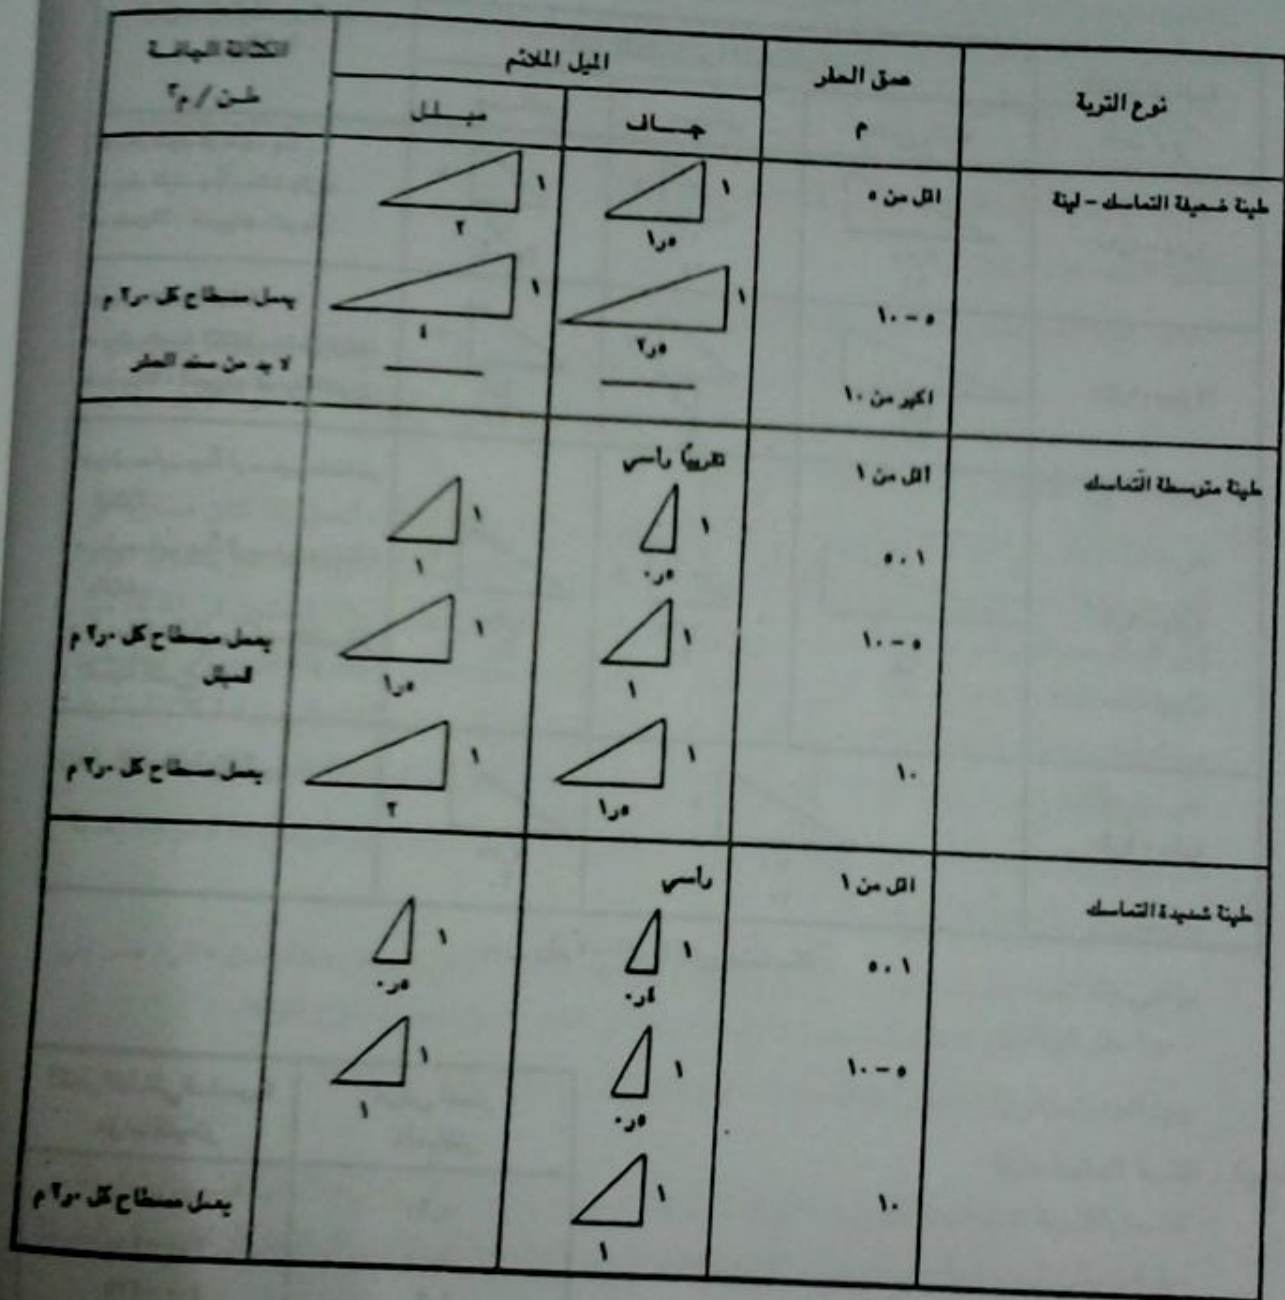 نوع التربة
عمق الحفر
م
الميل الملائم
جـــاف
مبـــلل
الكثافة الجافـة
طـن / م٣
طينة ضعيفة التماسك - لينة
اقل من ٥
١
١٫٥
١
٢
٥ - ١٠
١
٢٫٥
١
٤
يعمل مسطاح كل ٣٫٠ م
اكبر من ١٠
لا بد من سند الحفر
طينة متوسطة التماسك
اقل من ١
تقريبًا رأسي
١ ، ٥
١
٠٫٥
١
١
٥ - ١٠
١
١
١
١٫٥
يعمل مسطاح كل ٣٫٠ م
للمبلل
١٠
١
١٫٥
١
٢
يعمل مسطاح كل ٣٫٠ م
طينة شديدة التماسك
اقل من ١
رأسي
١ ، ٥
١
٠٫٤
١
٠٫٥
٥ - ١٠
١
٠٫٥
١
١
١٠
١
١
يعمل مسطاح كل ٣٫٠ م